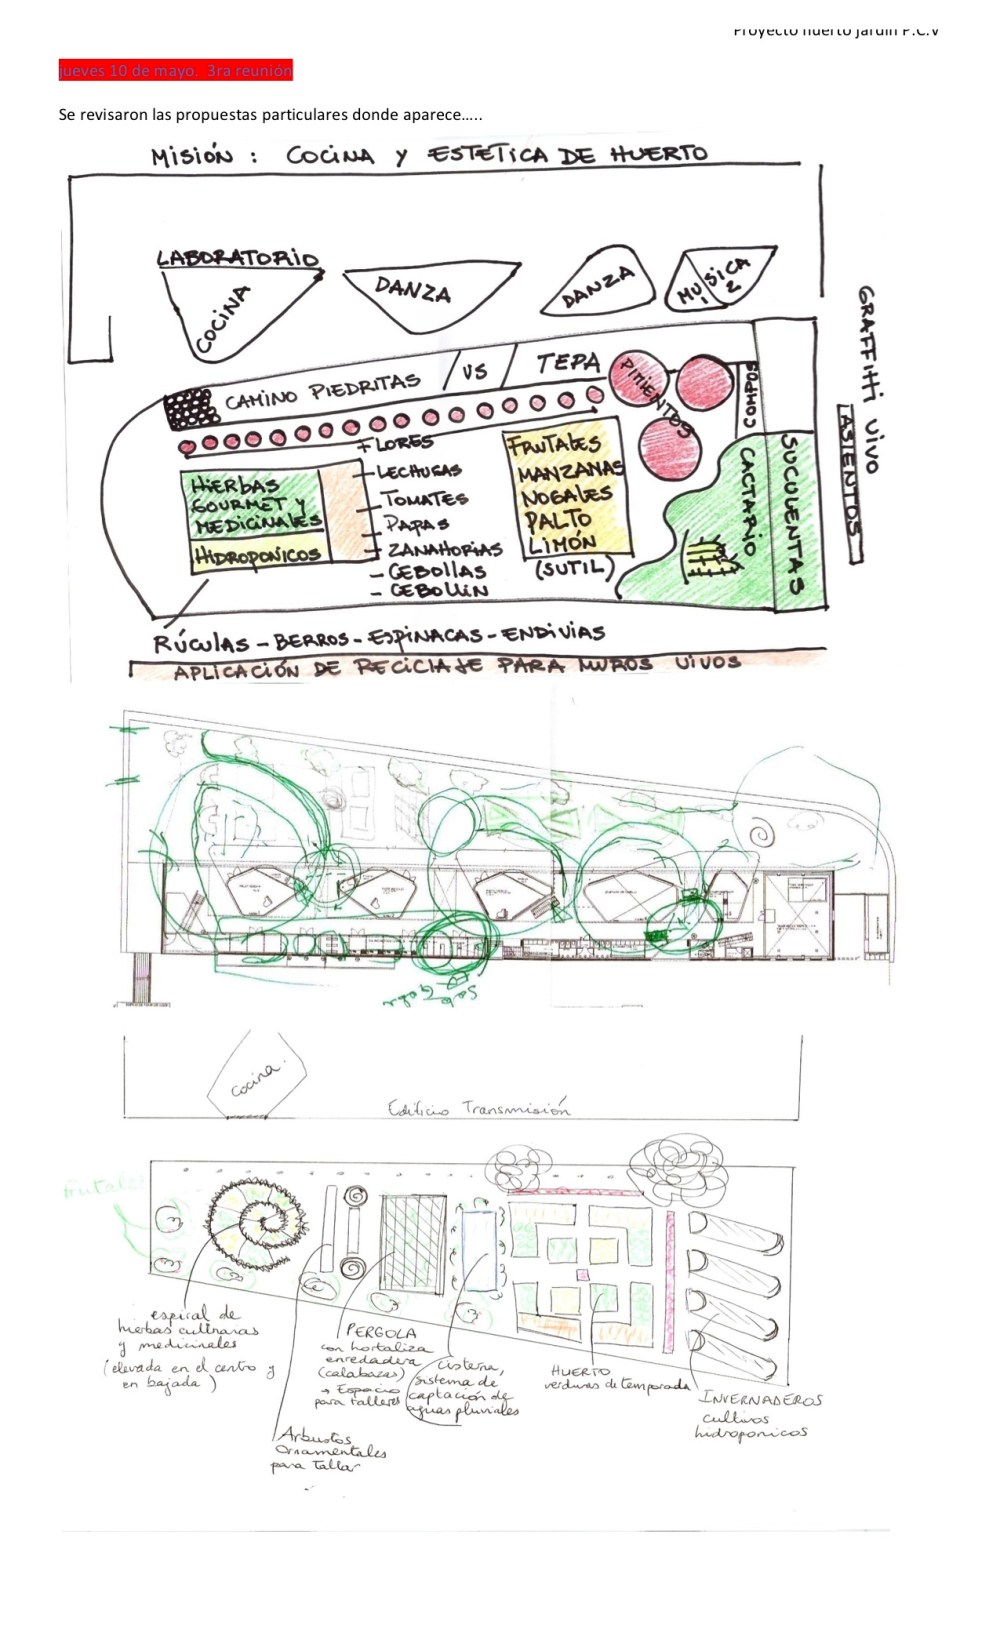 Proyecto huerto jardin P.C.V
jueves 10 de mayo.  3ra reunión
Se revisaron las propuestas particulares donde aparece…..
MISIÓN : COCINA Y ESTETICA DE HUERTO
LABORATORIO
COCINA
DANZA
DANZA
MUSICA
1 2
GRAFFITTI VIVO
ASIENTOS
CAMINO PIEDRITAS / VS / TEPA
PIMIENTOS
COMPOS
FLORES
HIERBAS
GOURMET Y
MEDICINALES
HIDROPONICOS
- LECHUGAS
- TOMATES
- PAPAS
- ZANAHORIAS
- CEBOLLAS
- CEBOLLIN
FRUTALES
MANZANAS
NOGALES
PALTO
LIMÓN
(SUTIL)
CACTARIO
SUCULENTAS
RÚCULAS - BERROS - ESPINACAS - ENDIVIAS
APLICACIÓN DE RECICLAJE PARA MUROS VIVOS
Cocina.
Edificio Transmisión
frutales
espiral de
hierbas culinarias
y medicinales
(elevada en el centro y
en bajada)
Arbustos
Ornamentales
para tallar
PERGOLA
con hortaliza
enredadera
(calabazas)
→ Espacio
para talleres
Cisterna,
sistema de
captación de
aguas pluviales
HUERTO
verduras de temporada
INVERNADEROS
cultivos
hidroponicos